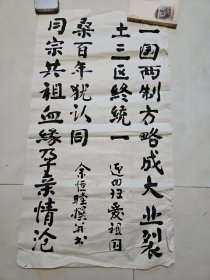 一国两制方略成大业裂
土三区终统一
迎回归爱祖国
同宗共祖血缘孕亲情沧
桑百年犹认同
余恒撰并书